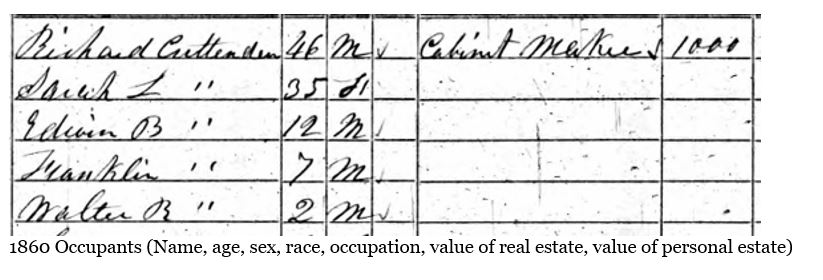 Richard Cruttenden 46 M Cabinet Maker 1000
Sarah L " 35 F
Edwin B " 12 M
Franklin " 7 M
Walter R " 2 M
1860 Occupants (Name, age, sex, race, occupation, value of real estate, value of personal estate)